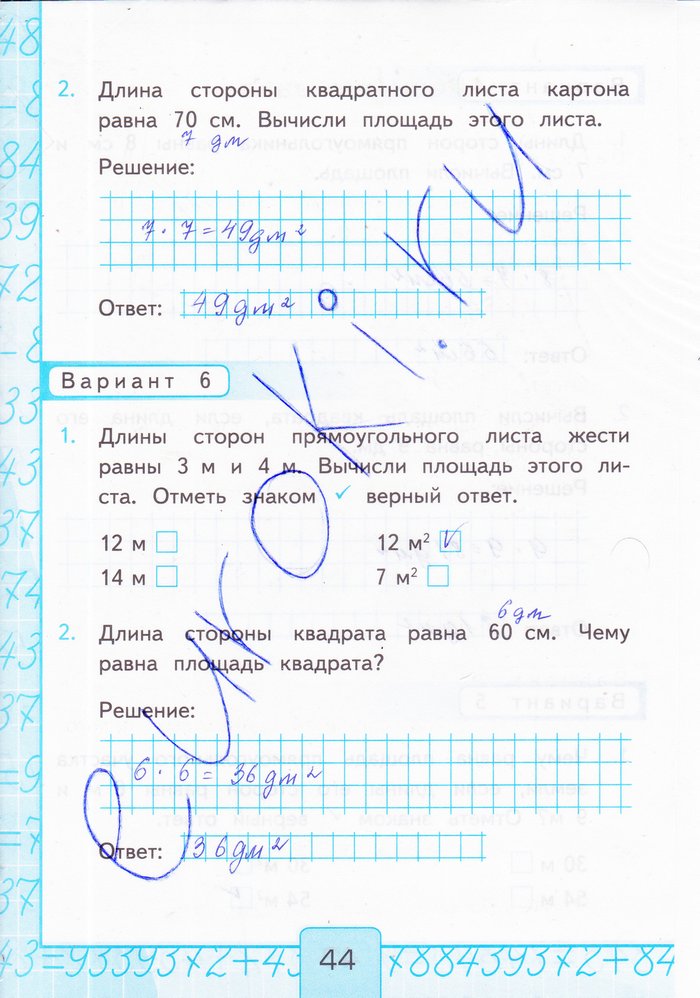 2. Длина стороны квадратного листа картона
равна 70 см. Вычисли площадь этого листа.
7 дм
Решение:
7 · 7 = 49 дм²
Ответ: 49 дм²
Вариант 6
1. Длины сторон прямоугольного листа жести
равны 3 м и 4 м. Вычисли площадь этого ли-
ста. Отметь знаком ✓ верный ответ.
12 м □ 12 м² ☑
14 м □ 7 м² □
6 дм
2. Длина стороны квадрата равна 60 см. Чему
равна площадь квадрата?
Решение:
6 · 6 = 36 дм²
Ответ: 36 дм²
44